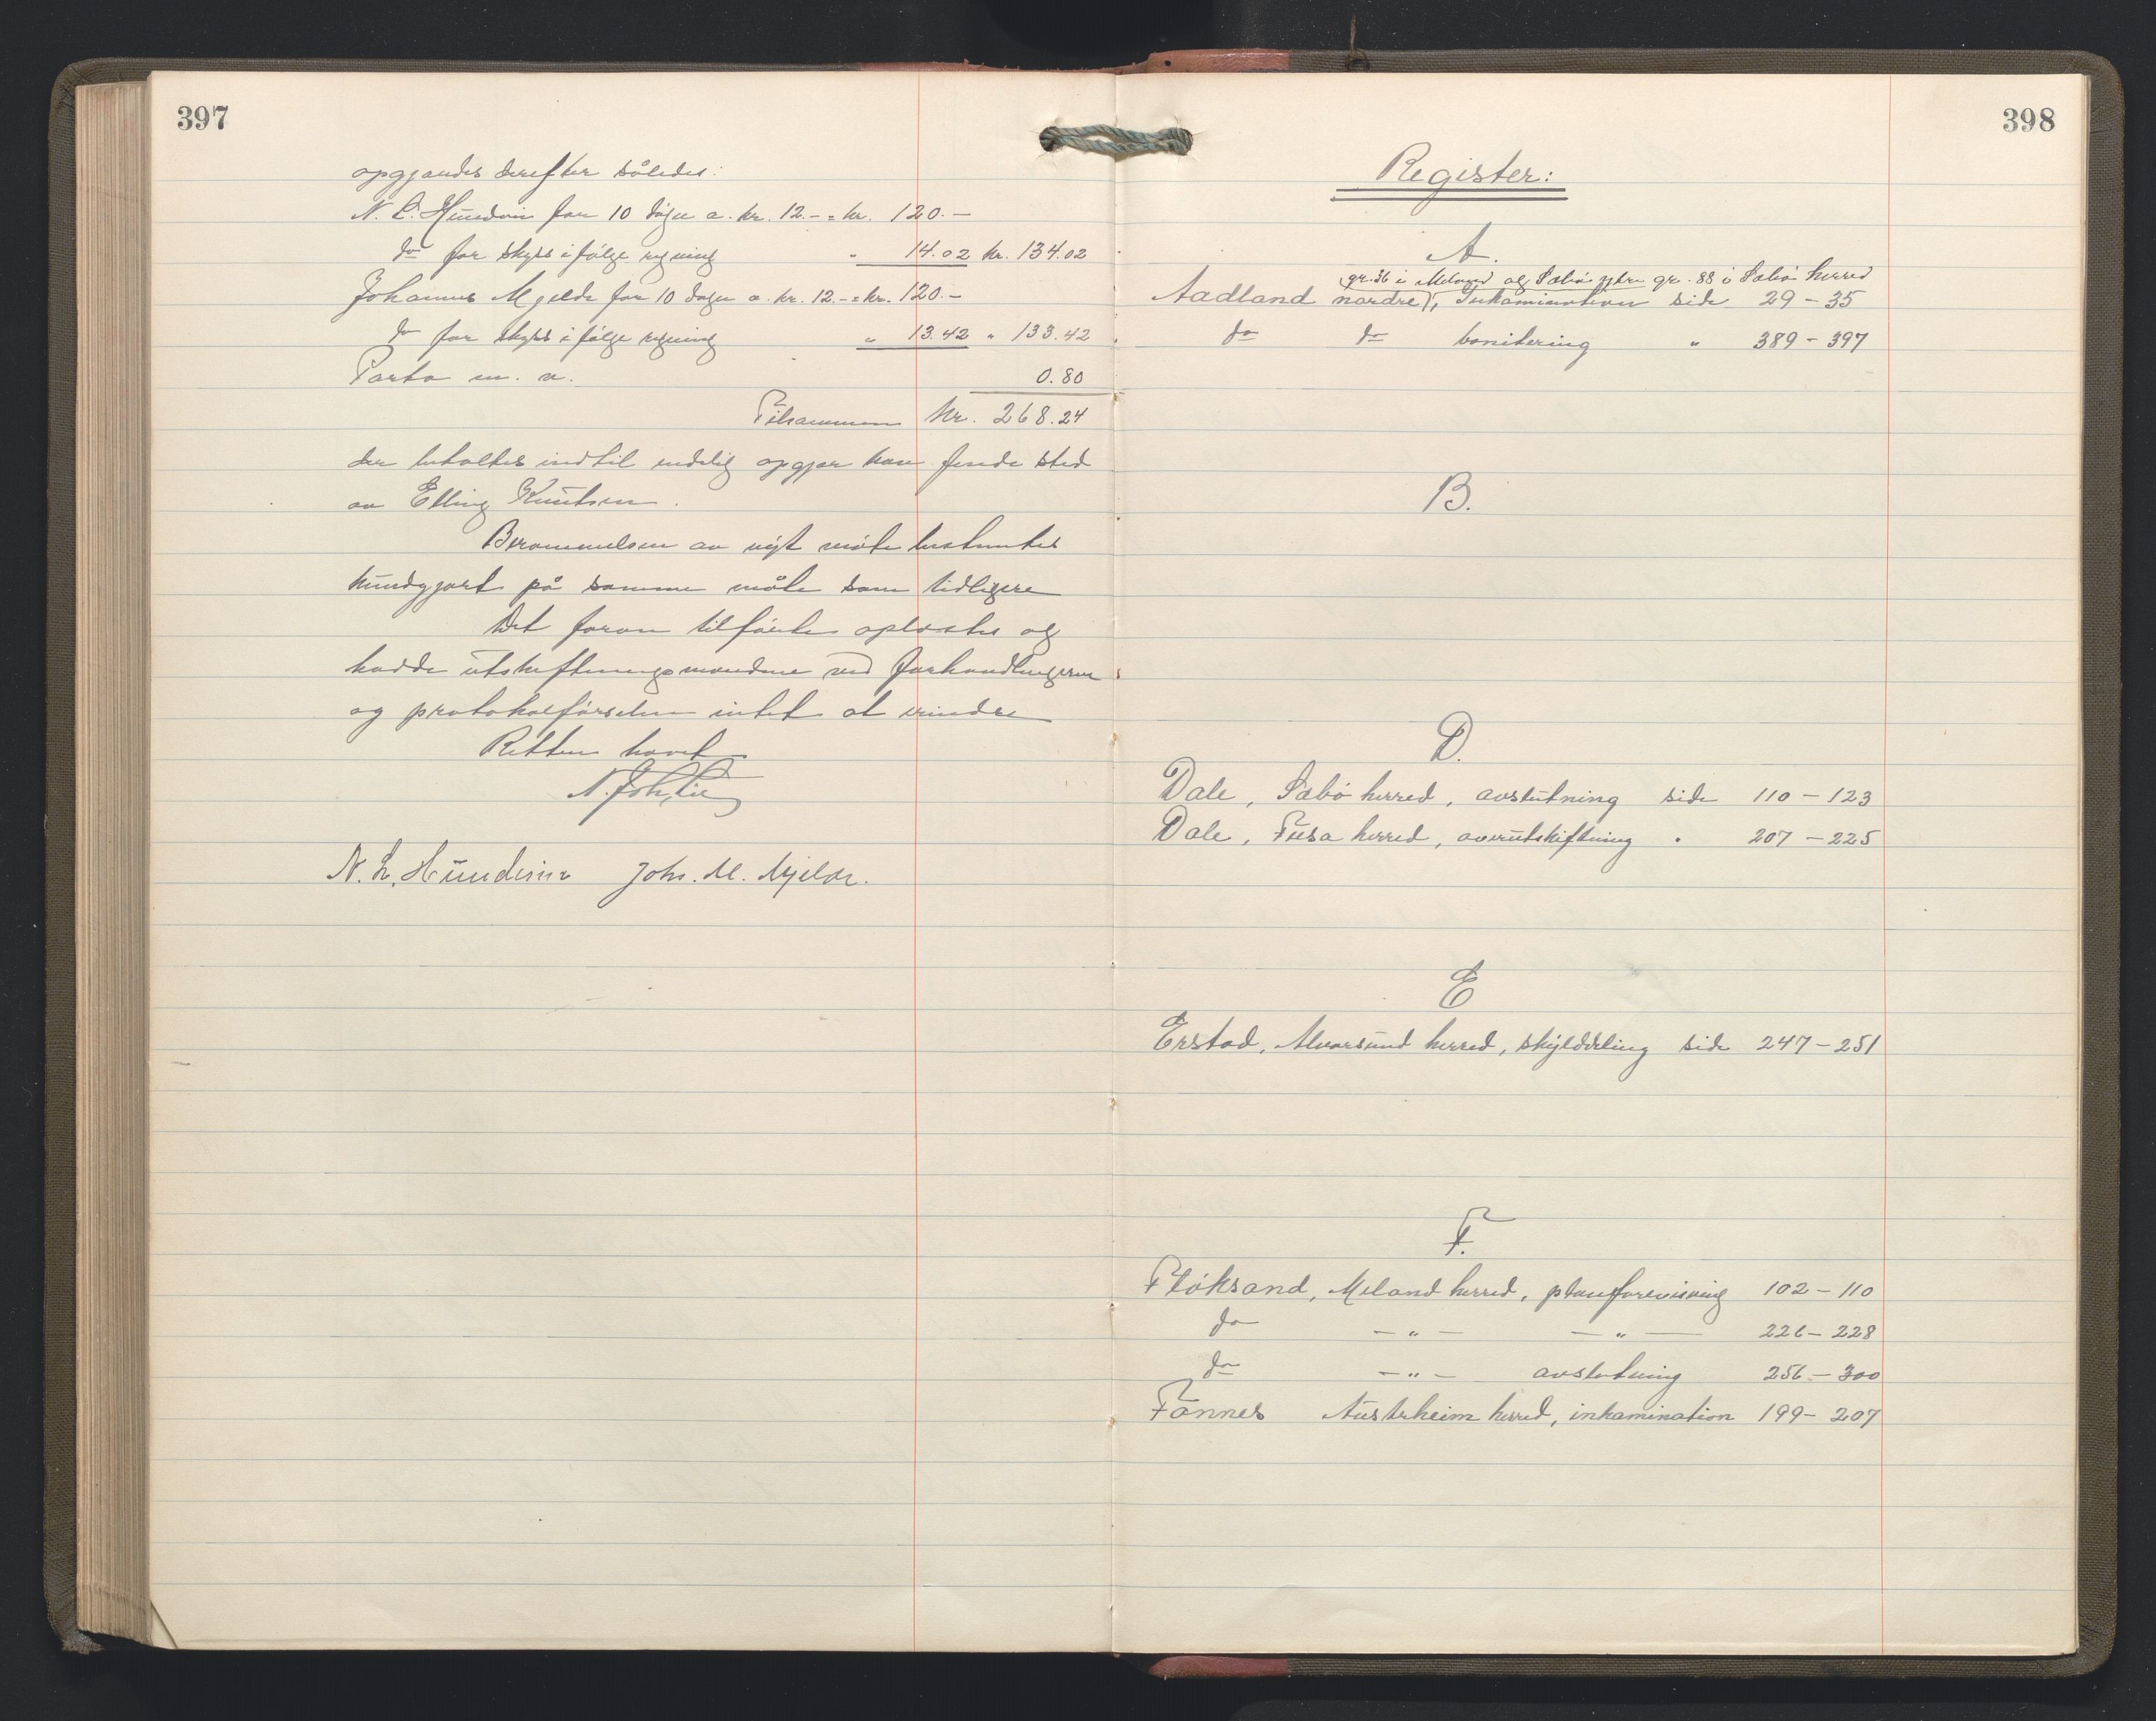 397
opgjordes derefter således:
N. L. Hundvin for 10 dage a. kr. 12.- = kr. 120.-
do for skyss ifølge regning " 14.02 kr. 134.02
Johannes Mjelde for 10 dage a. kr. 12.- = kr. 120.-
do for skyss ifølge regning " 13.42 " 133.42
Porto m. v. 0.80
Tilsammen kr. 268.24
der betaltes indtil endelig opgjør kan finde sted
av Elling Knutsen.
Berammelsen av nyt møte besluttes
kundgjort på samme måte som tidligere
Det foran tilførte oplæstes og
hadde utskiftningsmændene ved forhandlingerne
og protokolførselen intet at erindre
Retten hævet
N. Joh. Lie
N. L. Hundvin Johs. M. Mjelde.
398
Register:
A.
(gr. 36 i Meland og Sæbø ytre gr. 88 i Sæbø herred
Aadland nordre), Inkamination side 29 - 35
do do bonitering " 389 - 397
B.
D.
Dale, Sæbø herred, avslutning side 110 - 123
Dale, Fusa herred, overutskiftning " 207 - 225
E
Erstad, Alversund herred, skylddeling side 247 - 251
F.
Fløksand, Meland herred, planforevisning 102 - 110
do - " - - " - 226 - 228
do - " - avslutning 256 - 300
Fonnes Austrheim herred, inkamination 199 - 207